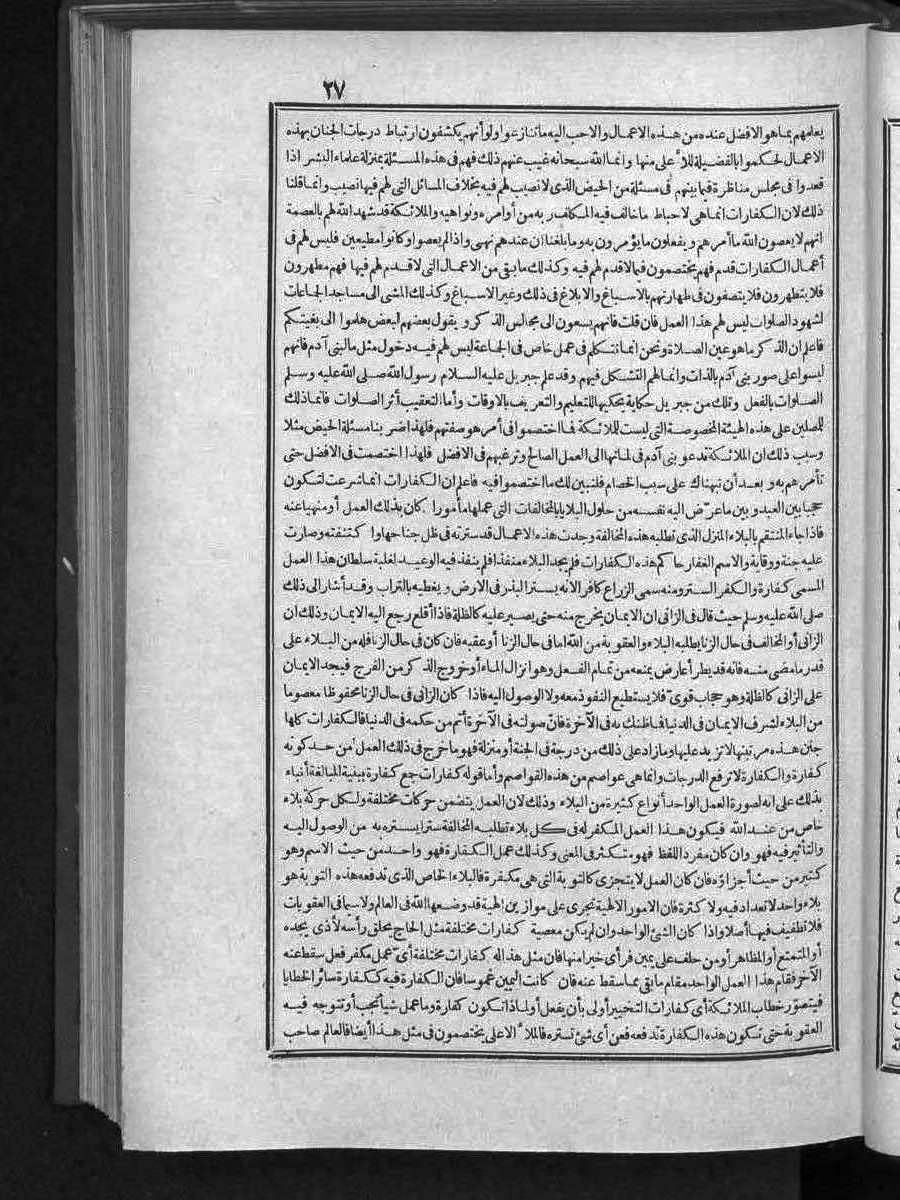 ٢٧
يعلمهم بما هو الافضل عنده من هذه الاعمال والاحب اليه ما تنازعوا ولو أنهم يكشفون ارتباط درجات الجنان بهذه
الاعمال لحكموا بالفضيلة للأعلى منها وانما الله سبحانه غيب عنهم ذلك فهم فى هذه المسئلة بمنزلة علماء البشر اذا
قعدوا فى مجلس مناظرة فيما بينهم فى مسئلة من الحيض الذى لا نصيب لهم فيه بخلاف المسائل التى لهم فيها نصيب وانما قلنا
ذلك لان الكفارات انما هى لاحباط ما خالف فيه المكلف ربه من أوامره ونواهيه والملائكة قد شهد الله لهم بالعصمة
انهم لا يعصون الله ما أمرهم ويفعلون ما يؤمرون به وما بلغنا ان عندهم نهى واذا لم يعصوا وكانوا مطيعين فليس لهم فى
أعمال الكفارات قدم فهم يختصمون فيما لا قدم لهم فيه وكذلك ما بقى من الاعمال التى لا قدم لهم فيها فهم مطهرون
فلا يتطهرون فلا يتصفون فى طهارتهم بالاسباغ والابلاغ فى ذلك وغير الاسباغ وكذلك المشى الى مساجد الجاعات
لشهود الصلوات ليس لهم هذا العمل فان قلت فانهم يسعون الى مجالس الذكر ويقول بعضهم لبعض هلموا الى بغيتكم
فاعلم ان الذكر ما هو عين الصلاة ونحن انما نتكلم فى عمل خاص فى الجاعة ليس لهم فيه دخول مثل ما لبنى آدم فانهم
ليسوا على صور بنى آدم بالذات وانما لهم التشكل فيهم وقد علم جبريل عليه السلام رسول الله صلى الله عليه وسلم
الصلوات بالفعل وتلك من جبريل حكاية يحكيها للتعليم والتعريف بالاوقات وأما التعقيب أثر الصلوات فانما ذلك
للمصلين على هذه الهيئة المخصوصة التى ليست للملائكة فما اختصموا فى أمر هو صفتهم فلهذا ضربنا مسئلة الحيض مثلا
وسبب ذلك ان الملائكة تدعو بنى آدم فى لماتها الى العمل الصالح وترغبهم فى الافضل فلهذا اختصمت فى الافضل حتى
تأمرهم به وبعد أن نبهناك على سبب الخصام فلنبين لك ما اختصموا فيه فاعلم ان الكفارات انما شرعت لتكون
حجبا بين العبد وبين ما عرّض اليه نفسه من حلول البلايا بالمخالفات التى عملها مأمورا كان بذلك العمل أو منهيا عنه
فاذا جاء المنتقم بالبلاء المنزل الذى تطلبه هذه المخالفة وجدت هذه الاعمال قد سترته فى ظل جناحها وا كتنفته وصارت
عليه جنة ووقاية والاسم الغفار حاكم هذه الكفارات فلم يجد البلاء منفذا فلم ينفذ فيه الوعيد لغلبة سلطان هذا العمل
المسمى كفارة والكفر الستر ومنه سمى الزراع كافرا لانه يستر البذر فى الارض ويغطيه بالتراب وقد أشار الى ذلك
صلى الله عليه وسلم حيث قال فى الزانى ان الايمان يخرج منه حتى يصير عليه كالظلة فاذا أقلع رجع اليه الايمان وذلك ان
الزانى أو المخالف فى حال الزنا يطلبه البلاء والعقوبة من الله اما فى حال الزنا أو عقبه فان كان فى حال الزنا فله من البلاء على
قدر ما مضى منسه فانه قد يطرأ عارض يمنعه من تمام الفعل وهو انزال الماء أو خروج الذكر من الفرج فيجد الايمان
على الزانى كالظلة وهو حجاب قوىّ فلا يستطيع النفوذ معه ولا الوصول اليه فاذا كان الزانى فى حال الزنا محفوظا معصوما
من البلاء لشرف الايمان فى الدنيا فما ظنك به فى الآخرة فانّ صولته فى الآخرة أتم من حكمه فى الدنيا فالكفارات كلها
جنن هذه مرتبتها لا تزيد عليها وما زاد على ذلك من درجة فى الجنة أو منزلة فهو ما خرج فى ذلك العمل من حد كونه
كفارة والكفارة لا ترفع الدرجات وانما هى عواصم من هذه القواصم وأما قوله كفارات جمع كفارة ببنية المبالغة أنباء
بذلك على انه لصورة العمل الواحد أنواع كثيرة من البلاء وذلك لان العمل يتضمن حركات مختلفة ولكل حركة بلاء
خاص من عند الله فيكون هذا العمل المكفر له فى كل بلاء تطلبه المخالفة سترا يستره به من الوصول اليه
والتأثير فيه فهو وان كان مفرد اللفظ فهو متكثر فى المعنى وكذلك عمل الكفارة فهو واحد من حيث الاسم وهو
كثير من حيث أجزاؤه فان كان العمل لا يتجزى كالتوبة التى هى مكفرة فالبلاء الخاص الذى تدفعه هذه التوبة هو
بلاء واحد لا تعداد فيه ولا كثرة فان الامور الالهية تجرى على موازين الهية قد وضعها الله فى العالم ولا سيما فى العقوبات
فلا تطفيف فيها أصلا واذا كان الشئ الواحد وان لم يكن معصية كفارات مختلفة مثل الحاج يحلق رأسه لأذى يجده
أو المتمتع أو المظاهر أو من حلف على يمين فرأى خيرا منها فان مثل هذا له كفارات مختلفة أىّ عمل مكفر فعل سقط عنه
الآخر فقام هذا العمل الواحد مقام ما بقى مما سقط عنه فان كانت اليمين غموسا فان الكفارة فيه ككفارة سائر الخطايا
فيتصوّر خطاب الملائكة أى كفارات التخيير أولى بأن يفعل أو لماذا تكون كفارة وما عمل شيأ تجب أو تتوجه فيه
العقوبة حتى تكون هذه الكفارة تدفعه فعن أى شئ تستره فالملأ الاعلى يختصمون فى مثل هذا أيضا فالعالم صاحب